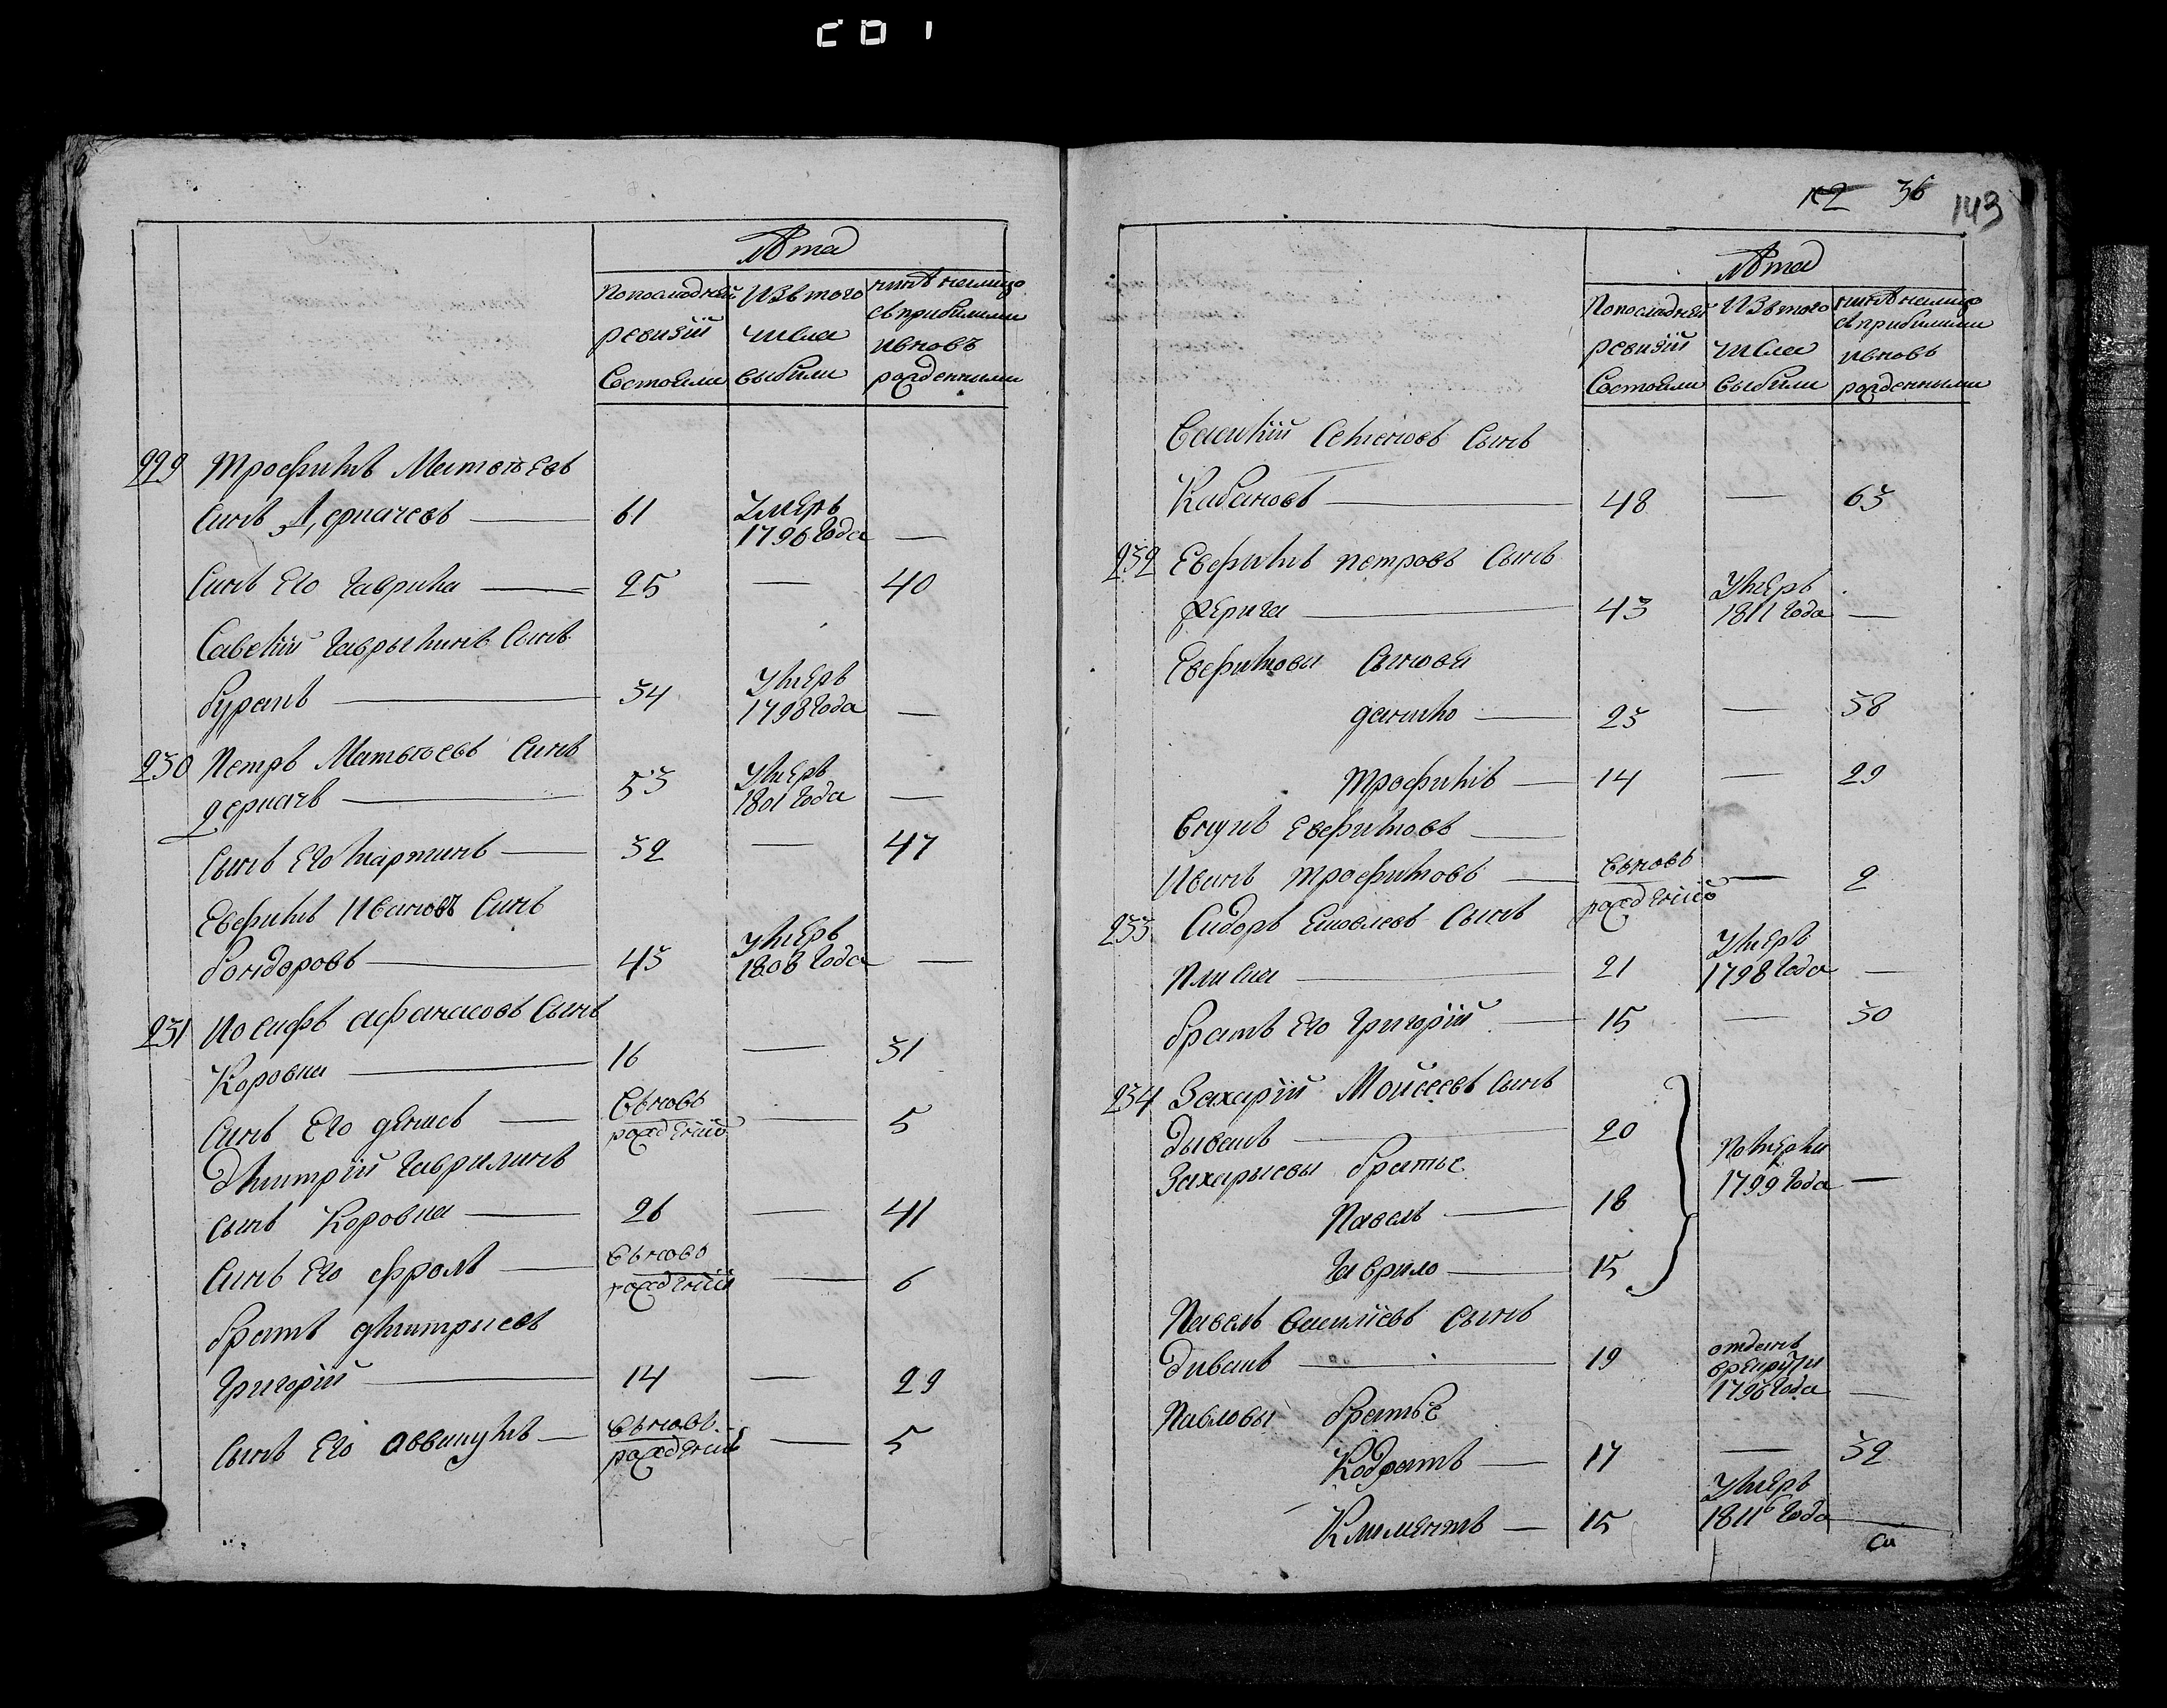 к2 36
143
Лѣта
Попоследней
ревизïи
Состояли
Изъ того
числа
выбыли
нынѣ налицо
съприбылыми
ивновь
рожденными
229 Трофимъ Матвѣевъ
Сынъ Дерпачевъ — 61 Умеръ
1796 года —
Сынъ Его Гаврила — 25 — 40
Савелий Гаврылинъ Сынъ
Буратъ — 34 Умеръ
1798 года —
230 Петръ Матвѣевъ Сынъ
дерпачъ — 53 Умеръ
1801 года —
Сынъ Его мартинъ — 32 — 47
Евфимъ Ивановъ Сынъ
бондоровъ — 43 Умеръ
1808 года —
231 Иосифъ афанасовъ Сынъ
Коровка — 16 — 31
Сынъ Его денисъ — Вновь
рожденïй — 5
Дмитрïй Гаврилинъ
сынъ Коровка — 26 — 41
Сынъ Его фролъ — Вновь
рожденïй — 6
братъ дмитрыевъ
Григорïй — 14 — 29
Сынъ Его аввакумъ — Вновь
рожденïй — 5
Лѣта
Попоследней
ревизïи
Состояли
Изъ того
числа
выбыли
нынѣ налицо
съприбылыми
ивновь
рожденными
Василïй Семеновъ Сынъ
Кабановъ — 48 — 63
232 Евфимъ петровъ Сынъ
— 43 Умеръ
1811 года —
Евфимовы Сыновя
данило — 23 — 38
трофимъ — 14 — 29
Внукъ Евфимовъ —
Иванъ трофимовъ — Вновь
рожденïй — 2
233 Сидоръ Яковлевъ Сынъ
Плиска — 21 Умеръ
1798 года —
братъ Его Григорïй — 15 — 30
234 Захарïй Мойсеевъ Сынъ
дыванъ — 20
Захарыевы братье
Павелъ — 18 Померли
1799 года —
Гаврило — 15
Павелъ Василïевъ Сынъ
Дыванъ — 19 отданъ
врекруты
1796 года —
Павловы братьЕ
Кодратъ — 17 — 32
Климентъ — 15 Умеръ
1811 года —
Са